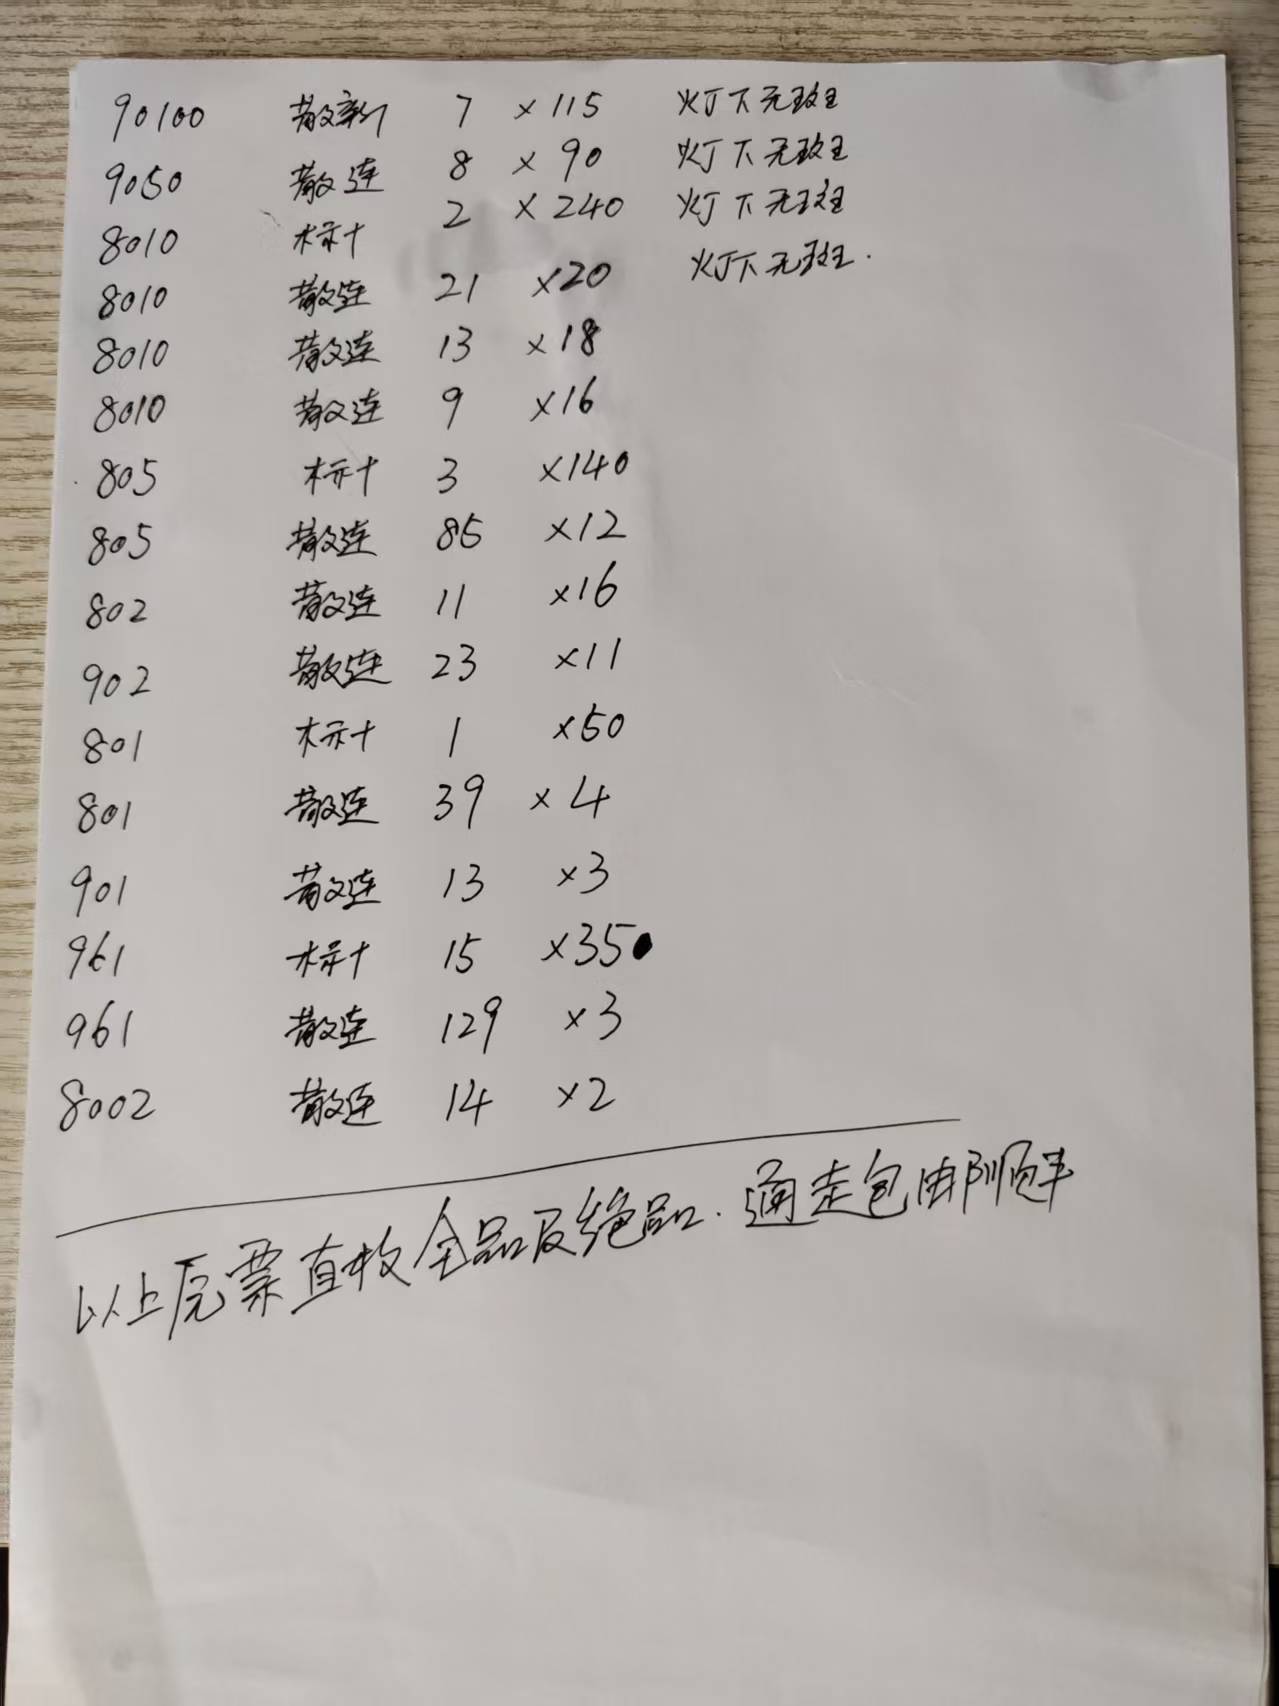 90100 散新 7 ×115 灯下无斑
9050 散连 8 ×90 灯下无斑
8010 标十 2 ×240 灯下无斑
8010 散连 21 ×20 灯下无斑.
8010 散连 13 ×18
8010 散连 9 ×16
805 标十 3 ×140
805 散连 85 ×12
802 散连 11 ×16
902 散连 23 ×11
801 标十 1 ×50
801 散连 39 ×4
901 散连 13 ×3
961 标十 15 ×35
961 散连 129 ×3
8002 散连 14 ×2
以上原票直板全品及绝品.通走包邮顺丰